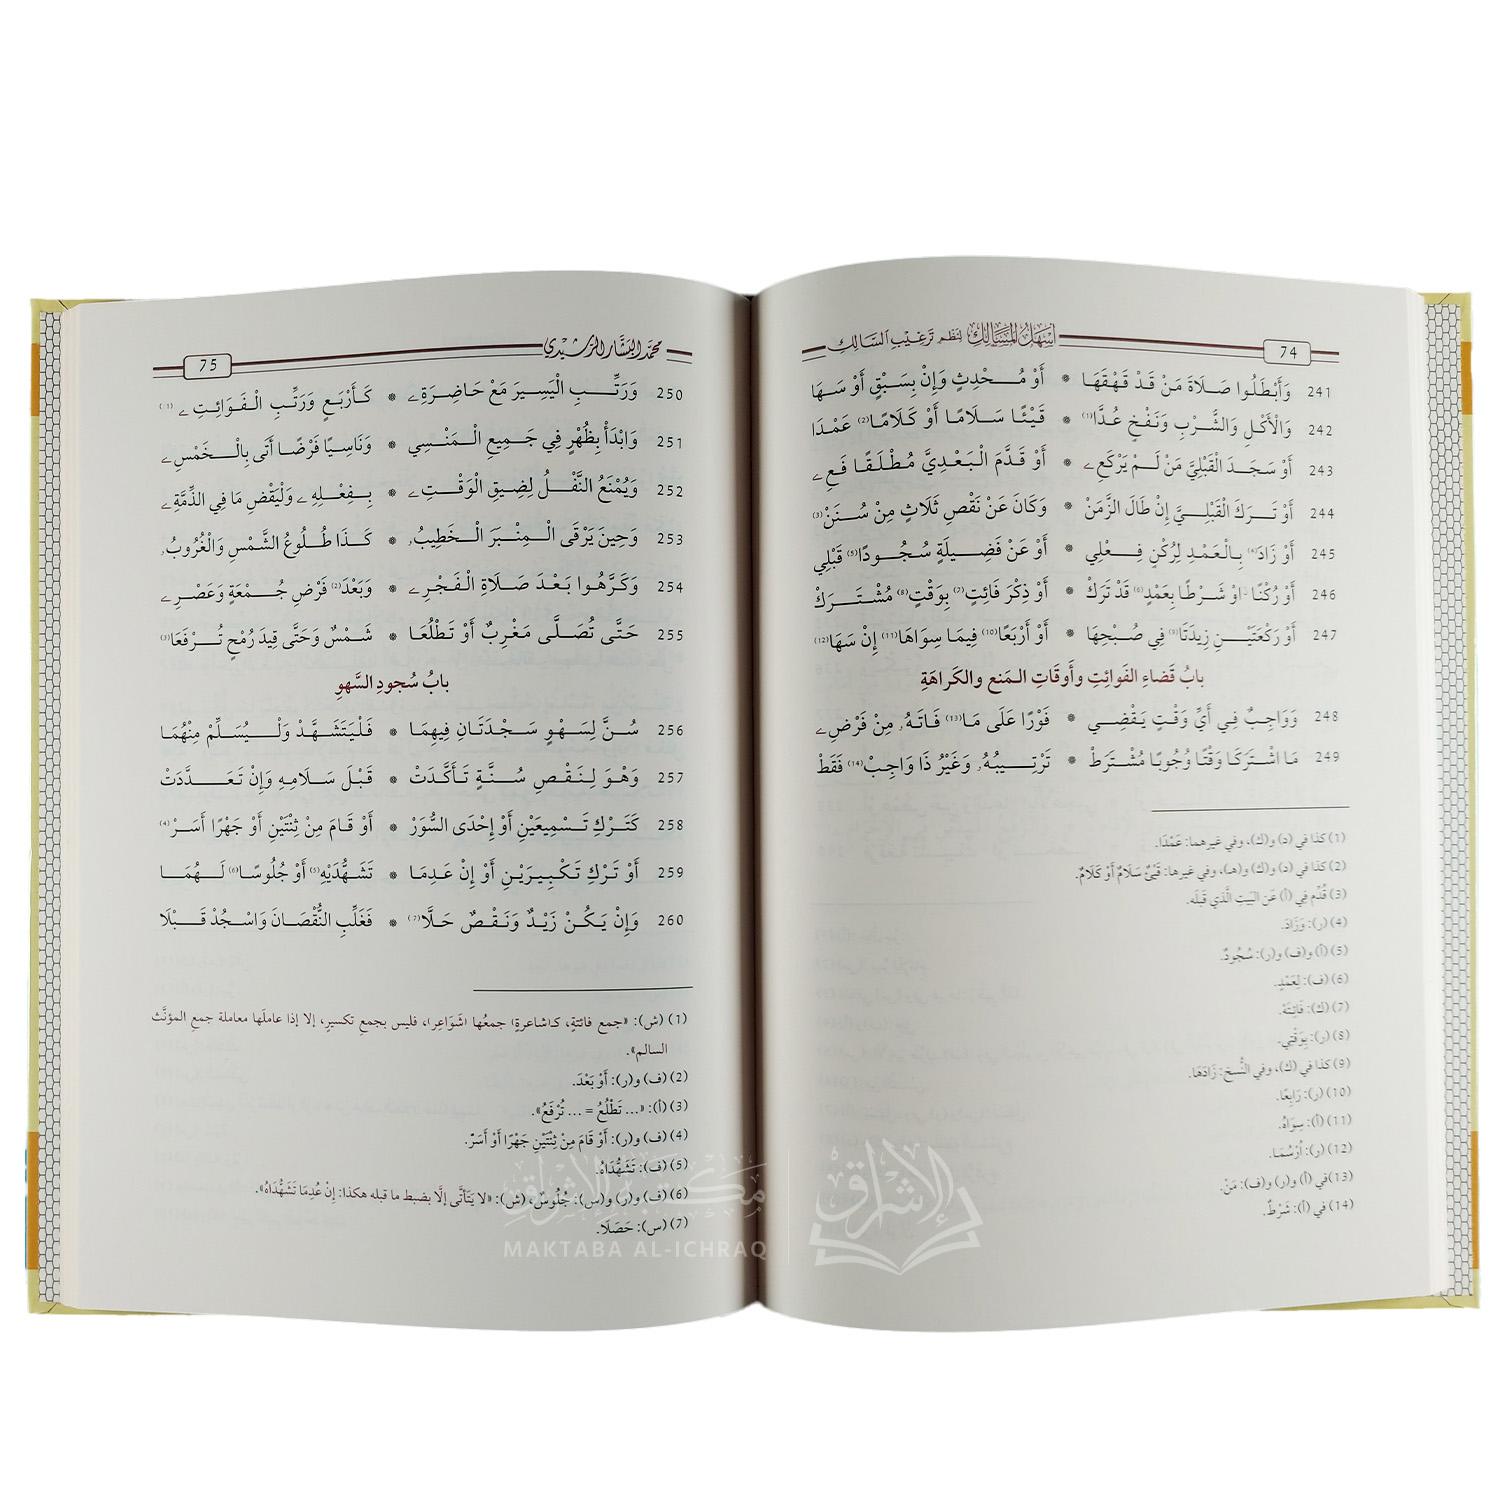 74 أسهل المسالك لنظم ترغيب السالك
241 وَأَبْطَلُوا صَلَاةَ مَنْ قَدْ قَهْقَهَا * أَوْ مُحْدِثٍ وَإِنْ بِسَبْقٍ أَوْ سَهَا
242 وَالْأَكْلِ وَالشُّرْبِ وَنَفْخٍ عُدَّا(1) * قَيْئًا سَلَامًا أَوْ كَلَامًا(2) عَمْدَا
243 أَوْ سَجَدَ الْقَبْلِيَّ مَنْ لَمْ يَرْكَعِ ے * أَوْ قَدَّمَ الْبَعْدِيَّ مُطْلَقًا فَعِ ے
244 أَوْ تَرَكَ الْقَبْلِيَّ إِنْ طَالَ الزَّمَنْ * وَكَانَ عَنْ نَقْصِ ثَلَاثٍ مِنْ سُنَنْ(3)
245 أَوْ زَادَ(4) بِالْعَمْدِ لِرُكْنٍ فِعْلِي * أَوْ عَنْ فَضِيلَةٍ سُجُودًا(5) قَبْلِي
246 أَوْ رُكْنًا اَوْ شَرْطًا بِعَمْدٍ(6) قَدْ تَرَكْ * أَوْ ذِكْرَ فَائِتٍ(7) بِوَقْتٍ(8) مُشْتَرَكْ
247 أَوْ رَكْعَتَيْنِ زِيدَتَا(9) فِي صُبْحِهَا * أَوْ أَرْبَعًا(10) فِيمَا سِوَاهَا(11) إِنْ سَهَا(12)
بابُ قَضاءِ الفَوائِتِ وأَوقَاتِ المَنعِ والكَراهَةِ
248 وَوَاجِبٌ فِي أَيِّ وَقْتٍ يَقْضِي * فَوْرًا عَلَى مَا(13) فَاتَهُ، مِنْ فَرْضِ ے
249 مَا اشْتَرَكَا وَقْتًا وُجُوبًا مُشْتَرَطْ * تَرْتِيبُهُ، وَغَيْرُ ذَا وَاجِبْ(14) فَقَطْ
(1) كذا في (د) و(ك)، وفي غيرهما: عَمْدَا.
(2) كذا في (د) و(ك) و(هـ)، وفي غيرها: قَيْءٌ سَلَامٌ أَوْ كَلَامٌ.
(3) قُدِّم في (أ) عَن البَيتِ الَّذي قَبلَه.
(4) (ر): وَزَادَ.
(5) (أ) و(ف) و(ر): سُجُودٌ.
(6) (ف): لِعَمْدٍ.
(7) (ك): فَائِتَةٌ.
(8) (ر): بِوَقْتِي.
(9) كذا في (ك)، وفي النُّسخ: زَادَهَا.
(10) (ر): رَابِعًا.
(11) (أ): سِوَاهُ.
(12) (ر):
(13) في (أ) و(ر) و(ف): مَنْ.
(14) في (أ): شَرْطٌ.
محمد البشار الرشيدي 75
250 وَرَتِّبِ الْيَسِيرَ مَعْ حَاضِرَةِ ے * كَأَرْبَعٍ وَرَتِّبِ الْفَوَائِتِ ے (1)
251 وَابْدَأْ بِظُهْرٍ فِي جَمِيعِ الْمَنْسِي * وَنَاسِيًا فَرْضًا أَتَى بِالْخَمْسِ ے
252 وَيُمْنَعُ النَّفْلُ لِضِيقِ الْوَقْتِ ے * بِفِعْلِهِ ے وَلْيَقْضِ مَا فِي الذِّمَّةِ ے
253 وَحِينَ يَرْقَى الْمِنْبَرَ الْخَطِيبُ، * كَذَا طُلُوعُ الشَّمْسِ وَالْغُرُوبُ،
254 وَكَرَّهُوا بَعْدَ صَلَاةِ الْفَجْرِ ے * وَبَعْدَ(2) فَرْضِ جُمْعَةٍ وَعَصْرِ ے
255 حَتَّى تُصَلَّى مَغْرِبٌ أَوْ تَطْلُعَا * شَمْسٌ وَحَتَّى قِيدَ رُمْحٍ تُرْفَعَا(3)
بابُ سُجودِ السَّهوِ
256 سُنَّ لِسَهْوٍ سَجْدَتَانِ فِيهِمَا * فَلْيَتَشَهَّدْ وَلْيُسَلِّمْ مِنْهُمَا
257 وَهْوَ لِنَقْصِ سُنَّةٍ تَأَكَّدَتْ * قَبْلَ سَلَامِهِ وَإِنْ تَعَدَّدَتْ
258 كَتَرْكِ تَسْمِيعَيْنِ أَوْ إِحْدَى السُّوَرْ * أَوْ قَامَ مِنْ ثِنْتَيْنِ أَوْ جَهْرًا أَسَرْ(4)
259 أَوْ تَرْكِ تَكْبِيرَيْنِ أَوْ إِنْ عَدِمَا * تَشَهُّدَيْهِ(5) أَوْ جُلُوسًا(6) لَهُمَا
260 وَإِنْ يَكُنْ زَيْدٌ وَنَقْصٌ حَلَّا(7) * فَغَلِّبِ النُّقْصَانَ وَاسْجُدْ قَبْلَا
(1) (ش): «جمع فائتةٍ، كـ(شاعرة) جمعُها (شَوَاعِر)، فليس بجمعِ تكسيرٍ، إلا إذا عاملَها معاملة جمع المؤنَّث
السالم».
(2) (ف) و(ر): أَوْ بَعْدَ.
(3) (أ): «... تَطْلُعُ = ... تُرْفَعُ».
(4) (ف) و(ر): أَوْ قَامَ مِنْ ثِنْتَيْنِ جَهْرًا أَوْ أَسَرّ.
(5) (ف): تَشَهُّدَاهُ.
(6) (ف) و(ر) و(س): جُلُوسٌ، (ش): «لا يَتَأَتَّى إلَّا بضبط ما قبله هكذا: إِنْ عُدِمَا تَشَهُّدَاهُ».
(7) (س): حَصَلَا.
مكتبة الإشراق
MAKTABA AL-ICHRAQ
الإشراق